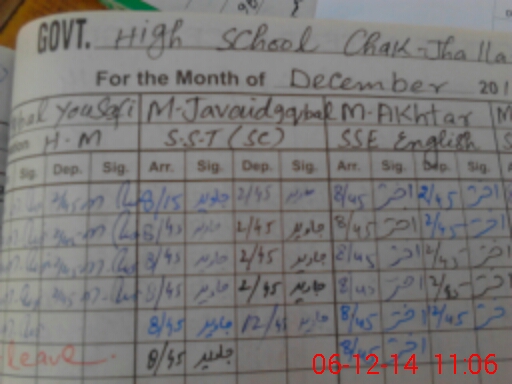 GOVT. High School Chak-Jhalla
For the Month of December 201
yousafi M-Javaidiqbal M-Akhtar M
H-M S.S.T (SC) SSE English S
Sig. Dep. Sig. Arr. Sig. Dep. Sig. Arr. Sig. Dep. Sig.
2/45 8/15 جاوید 2/45 جاوید 8/45 اختر 2/45 اختر
8/45 جاوید 2/45 جاوید 8/45 اختر 2/45 اختر
8/45 جاوید 2/45 جاوید 8/45 اختر 2/45 اختر
2/45 8/45 جاوید 2/45 جاوید 8/45 اختر 2/45 اختر
8/45 جاوید 12/45 جاوید 8/45 اختر 12/45 اختر
leave. 8/45 جاوید 8/45 اختر
06-12-14 11:06